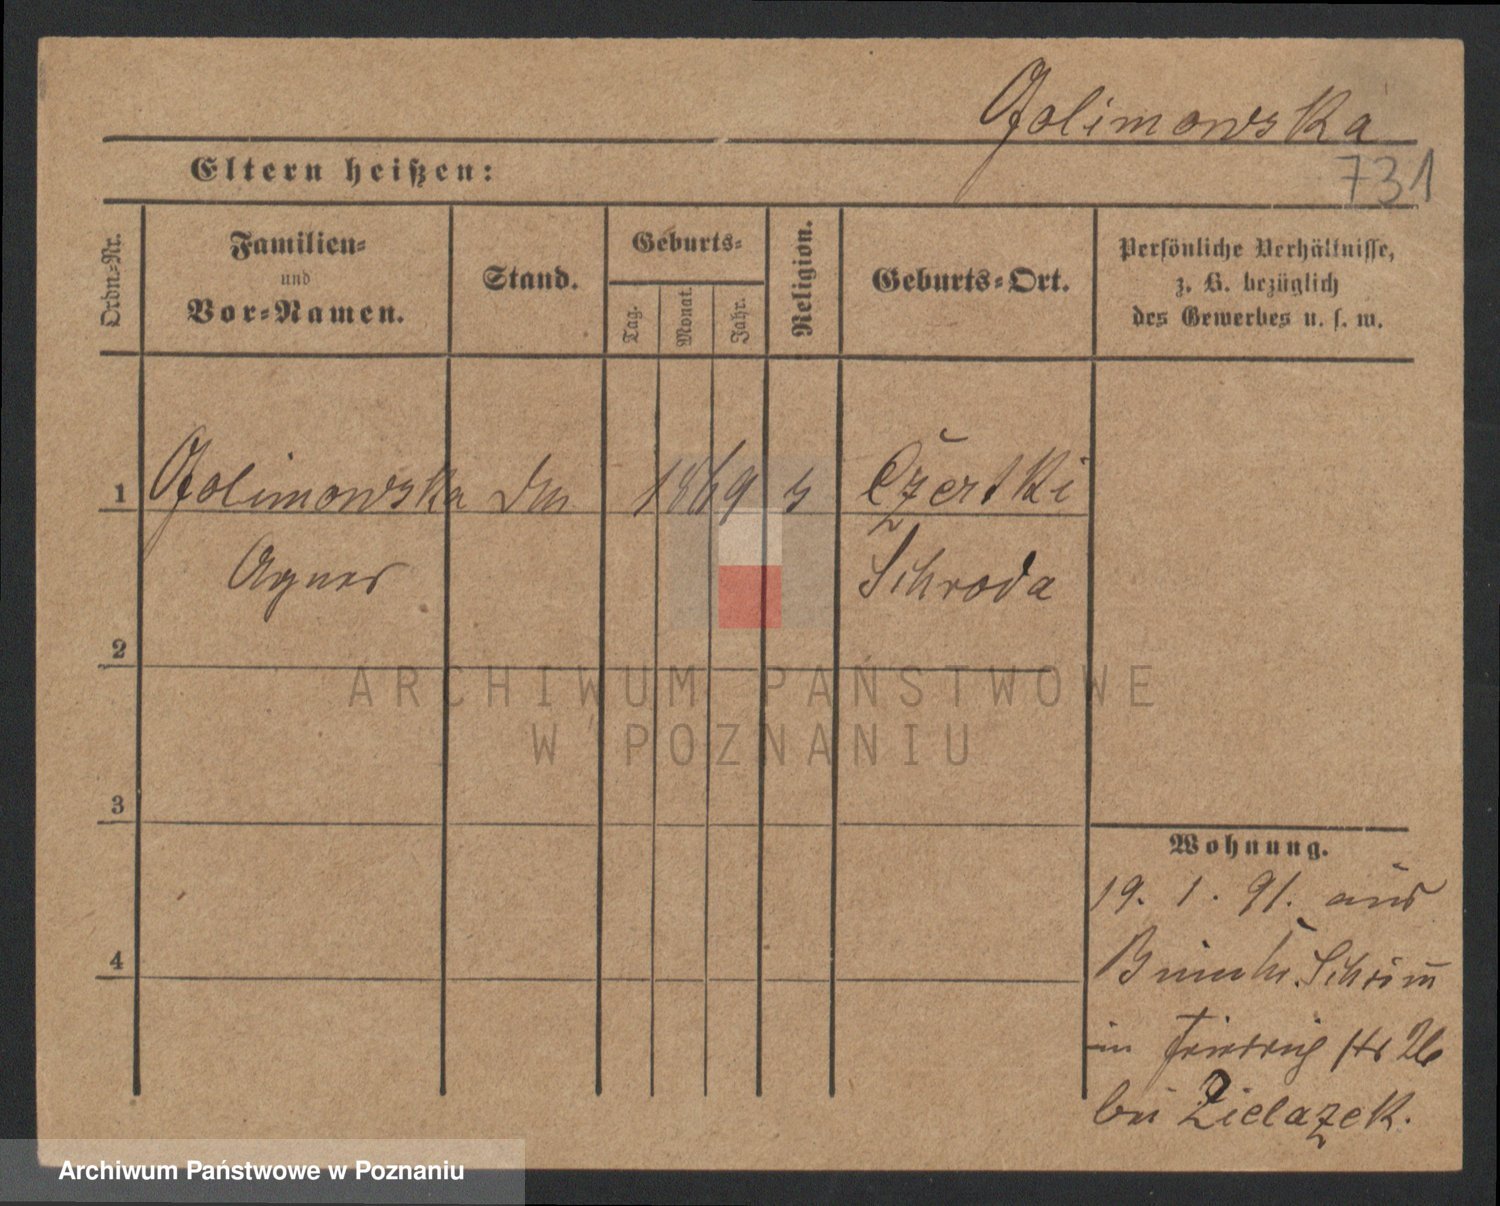 Golimowska
731
Eltern heißen:
Ordn=Nr.
Familien=
und
Vor=Namen.
Stand.
Geburts=
Tag.
Monat.
Jahr.
Religion.
Geburts=Ort.
Persönliche Verhältnisse,
z. B. bezüglich
des Gewerbes u. s. w.
1 Golimowska 1869 Czertki
Agnes Schroda
2
ARCHIWUM PAŃSTWOWE
W POZNANIU
3
4
Wohnung.
19. 1. 91. aus
Schrimm
in Friedrich str 26
bei Zielazek.
Archiwum Państwowe w Poznaniu